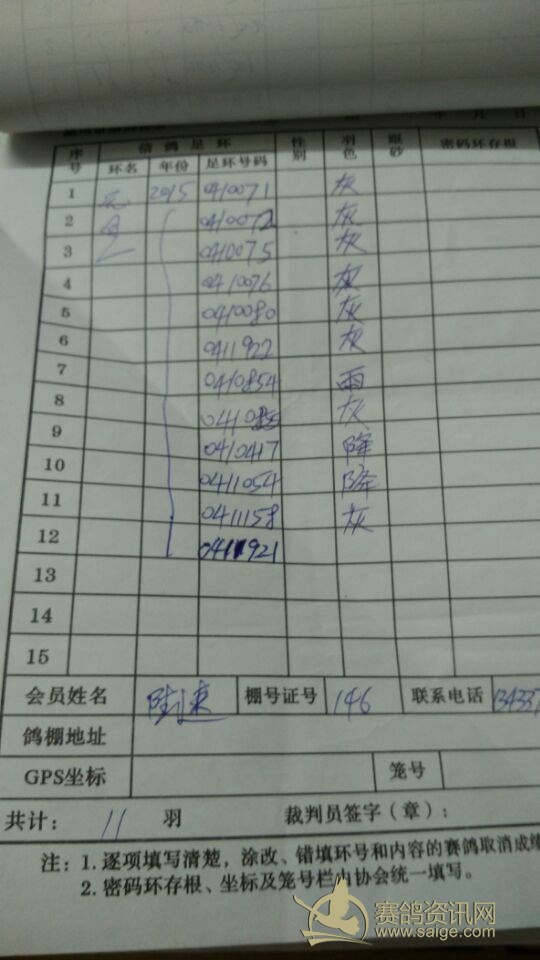 序号 信鸽足环 性别 羽色 眼砂 密码环存根
环名 年份 足环号码
1 2015 0410071 灰
2 0410072 灰
3 0410075 灰
4 0410076 灰
5 0410080 灰
6 0411922 灰
7 0410854 雨
8 灰
9 0410417
10 0411054
11 0411158 灰
12 0411921
13
14
15
会员姓名 棚号证号 146 联系电话 134337
鸽棚地址
GPS坐标 笼号
共计: 11 羽 裁判员签字(章):
注:1.逐项填写清楚,涂改、错填环号和内容的赛鸽取消成绩
2.密码环存根、坐标及笼号栏由协会统一填写。
赛鸽资讯网
www.saige.com